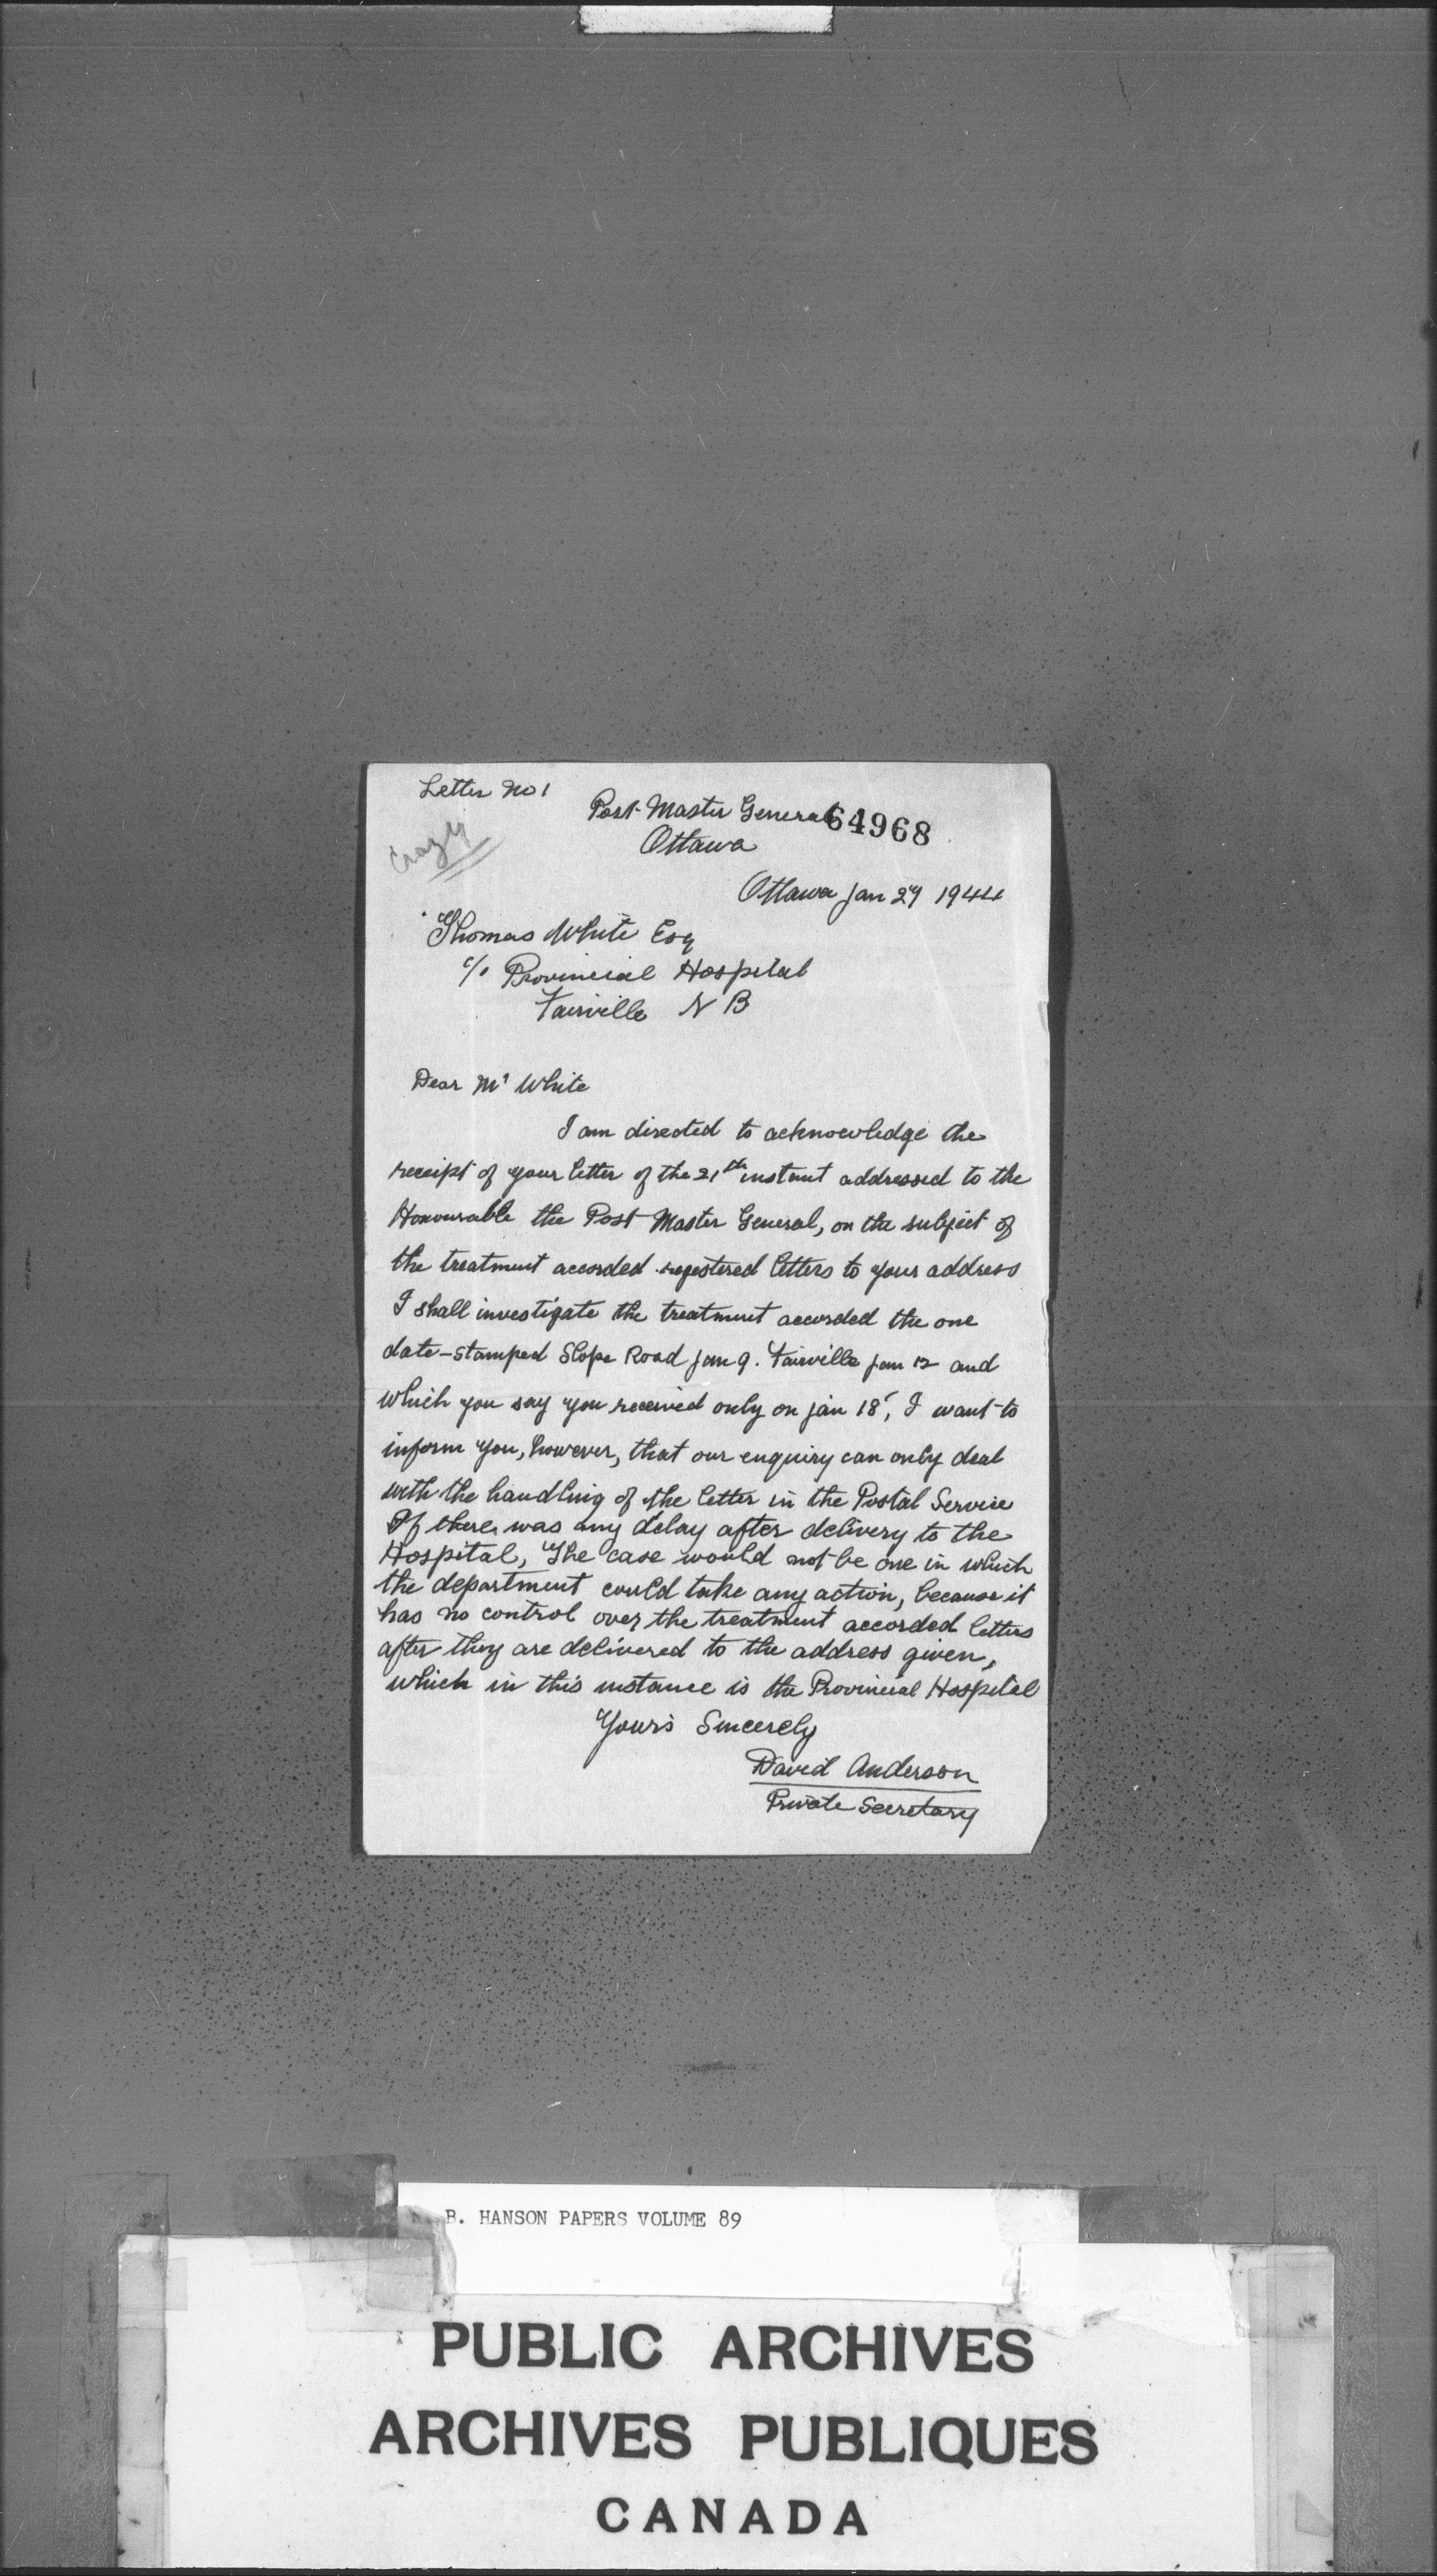 Letter No 1
Post-Master General 64968
Crazy
Ottawa
Ottawa Jan 27 1944
Thomas White Esq
c/o Provincial Hospital
Fairville N B
Dear Mr White
I am directed to acknowledge the
receipt of your letter of the 21st instant addressed to the
Honourable the Post Master General, on the subject of
the treatment accorded registered letters to your address
I shall investigate the treatment accorded the one
date-stamped Slope Road Jan 9. Fairville Jan 12 and
which you say you received only on Jan 18, I want to
inform you, however, that our enquiry can only deal
with the handling of the letter in the Postal Service
If there was any delay after delivery to the
Hospital, The case would not be one in which
the department could take any action, because it
has no control over the treatment accorded letters
after they are delivered to the address given,
which in this instance is the Provincial Hospital
Yours Sincerely
David Anderson
Private Secretary
B. HANSON PAPERS VOLUME 89
PUBLIC ARCHIVES
ARCHIVES PUBLIQUES
CANADA